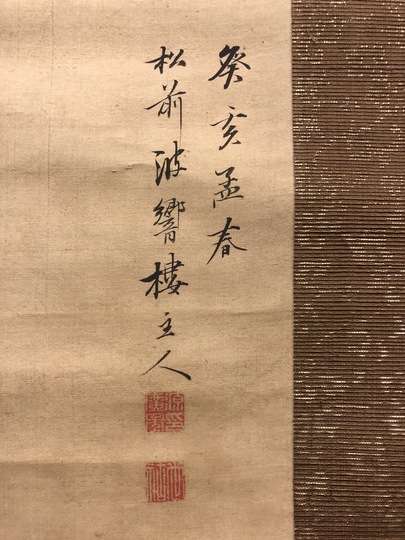 癸亥孟春
松前波響樓主人